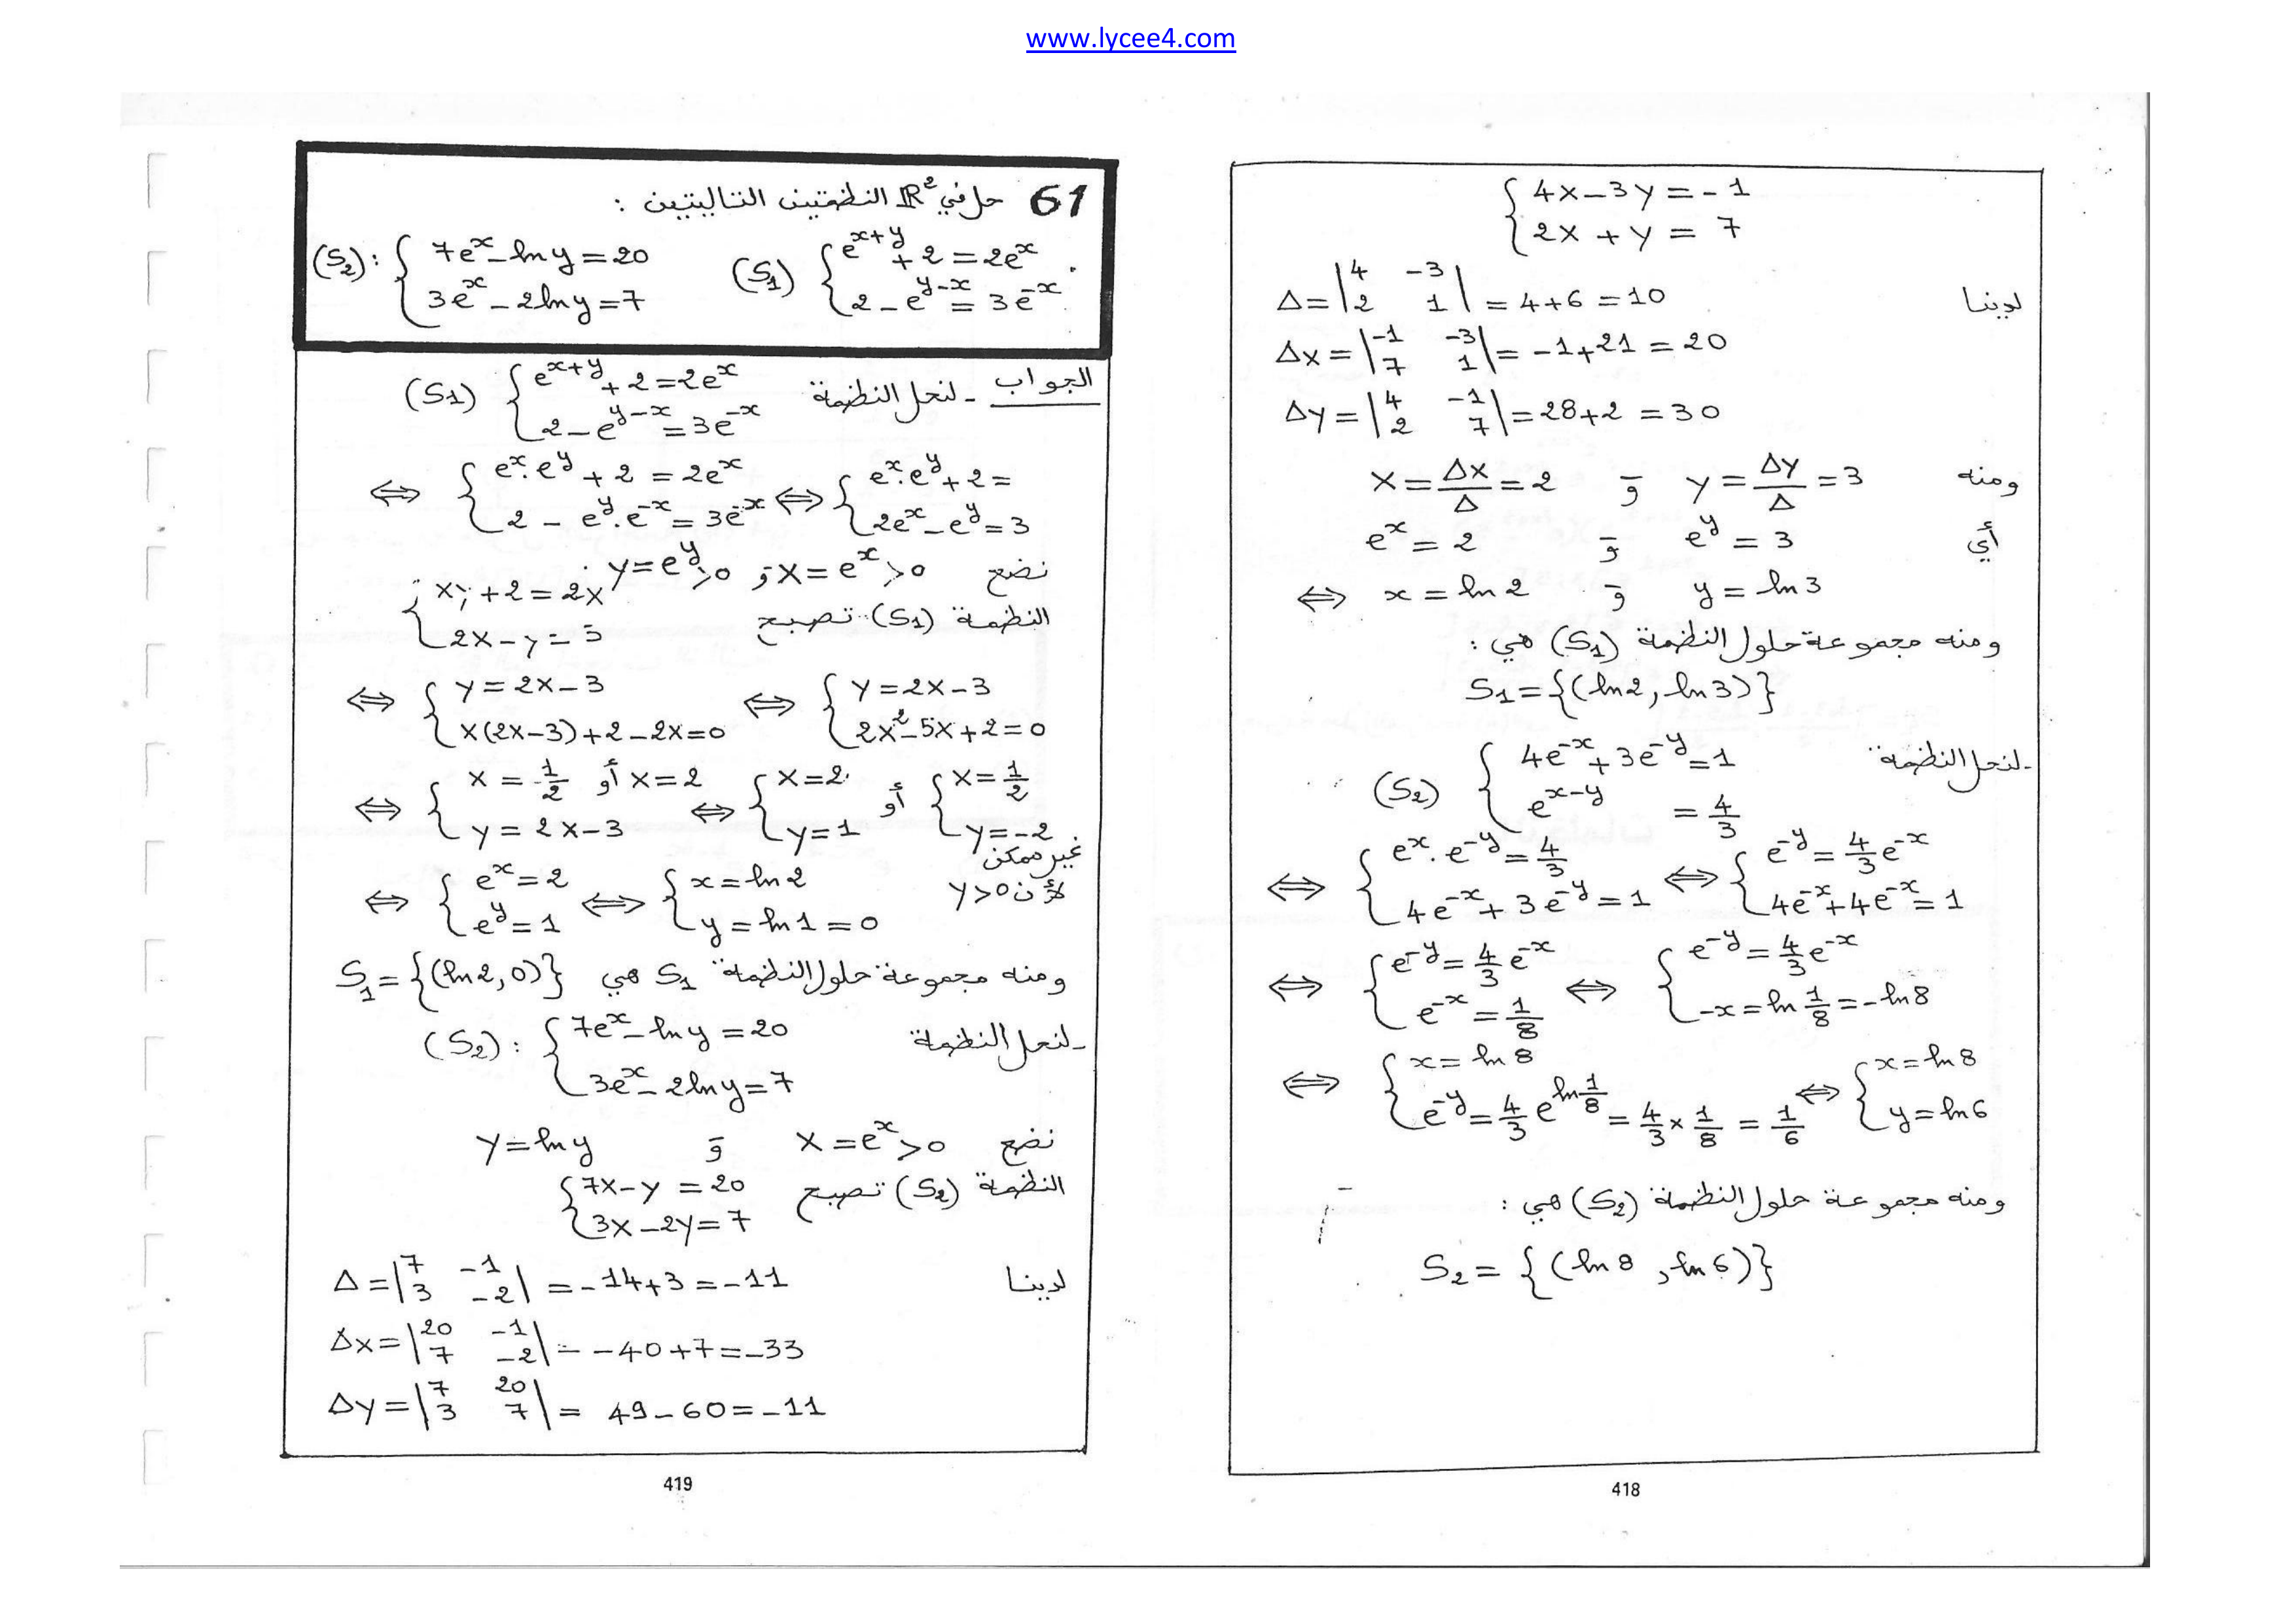 www.lycee4.com
{ 4X − 3Y = −1
2X + Y = 7
لدينا Δ = |4 −3 / 2 1| = 4+6 = 10
ΔX = |−1 −3 / 7 1| = −1+21 = 20
ΔY = |4 −1 / 2 7| = 28+2 = 30
ومنه X = ΔX/Δ = 2 و Y = ΔY/Δ = 3
أي e^x = 2 و e^y = 3
⇔ x = ln2 و y = ln3
ومنه مجموعة حلول النظمة (S1) هي :
S1 = {(ln2, ln3)}
- لنحل النظمة (S2) { 4e^−x + 3e^−y = 1
e^x−y = 4/3
⇔ { e^x . e^−y = 4/3 ⇔ { e^−y = 4/3 e^−x
4e^−x + 3e^−y = 1 4e^−x + 4e^−x = 1
⇔ { e^−y = 4/3 e^−x ⇔ { e^−y = 4/3 e^−x
e^−x = 1/8 −x = ln 1/8 = −ln8
⇔ { x = ln 8 ⇔ { x = ln 8
e^−y = 4/3 e^ln 1/8 = 4/3 × 1/8 = 1/6 y = ln 6
ومنه مجموعة حلول النظمة (S2) هي :
S2 = {(ln 8, ln 6)}
418
61 حل في ℝ² النظمتين التاليتين :
(S1) { e^x+y + 2 = 2e^x (S2) : { 7e^x − ln y = 20
2 − e^y−x = 3e^−x . 3e^x − 2ln y = 7
الجواب - لنحل النظمة (S1) { e^x+y + 2 = 2e^x
2 − e^y−x = 3e^−x
⇔ { e^x . e^y + 2 = 2e^x ⇔ { e^x . e^y + 2 =
2 − e^y . e^−x = 3e^−x 2e^x − e^y = 3
نضع X = e^x > 0 و Y = e^y > 0
{ XY + 2 = 2X
النظمة (S1) تصبح 2X − Y = 3
⇔ { Y = 2X − 3 ⇔ { Y = 2X − 3
X(2X−3) + 2 − 2X = 0 2X² − 5X + 2 = 0
⇔ { X = 1/2 أو X = 2 ⇔ { X = 2 أو { X = 1/2
Y = 2X − 3 Y = 1 Y = −2
غير ممكن
لأن Y > 0
⇔ { e^x = 2 ⇔ { x = ln 2
e^y = 1 y = ln 1 = 0
ومنه مجموعة حلول النظمة S1 هي S1 = {(ln2, 0)}
- لنحل النظمة (S2) : { 7e^x − ln y = 20
3e^x − 2ln y = 7
نضع X = e^x > 0 و Y = ln y
النظمة (S2) تصبح { 7X − Y = 20
3X − 2Y = 7
لدينا Δ = |7 −1 / 3 −2| = −14+3 = −11
ΔX = |20 −1 / 7 −2| = −40+7 = −33
ΔY = |7 20 / 3 7| = 49−60 = −11
419